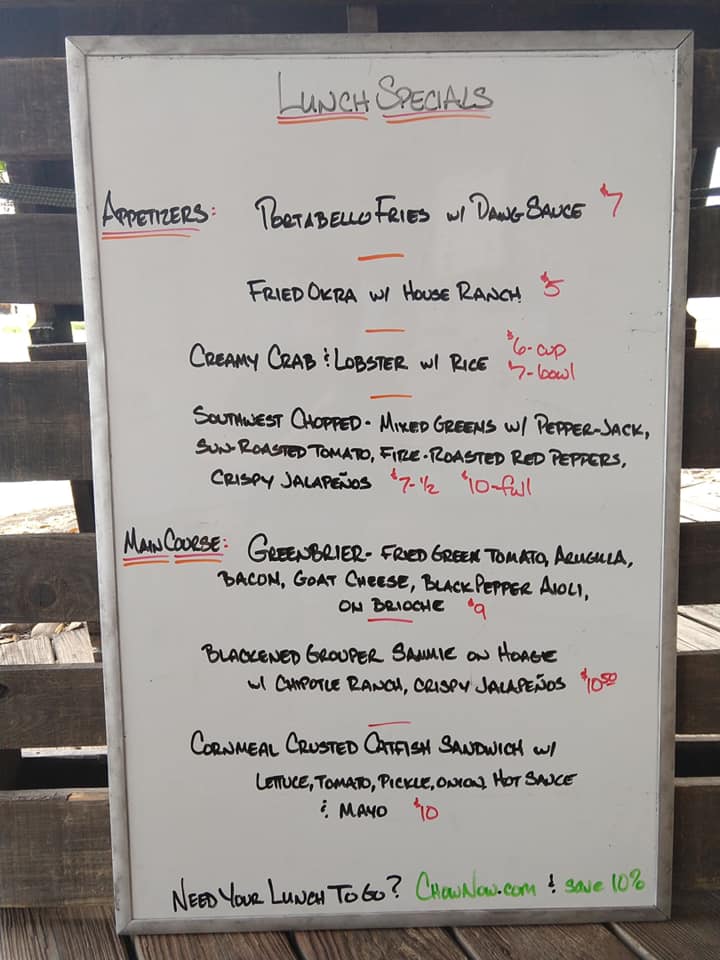 LUNCH SPECIALS
APPETIZERS: PORTABELLO FRIES W/ DANG SAUCE $7
FRIED OKRA W/ HOUSE RANCH $5
CREAMY CRAB & LOBSTER W/ RICE $6-cup
7-bowl
SOUTHWEST CHOPPED - MIXED GREENS W/ PEPPER-JACK,
SUN-ROASTED TOMATO, FIRE-ROASTED RED PEPPERS,
CRISPY JALAPEÑOS $7-1/2 $10-full
MAIN COURSE: GREENBRIER- FRIED GREEN TOMATO, ARUGULA,
BACON, GOAT CHEESE, BLACK PEPPER AIOLI,
ON BRIOCHE $9
BLACKENED GROUPER SAMMIE ON HOAGIE
W/ CHIPOTLE RANCH, CRISPY JALAPEÑOS $10.50
CORNMEAL CRUSTED CATFISH SANDWICH W/
LETTUCE, TOMATO, PICKLE, ONION, HOT SAUCE
& MAYO $10
NEED YOUR LUNCH TO GO? CHOWNOW.com & save 10%